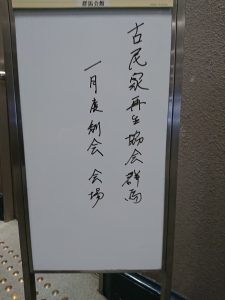 群馬会館
古民家再生協会群馬
一月度例会 会場